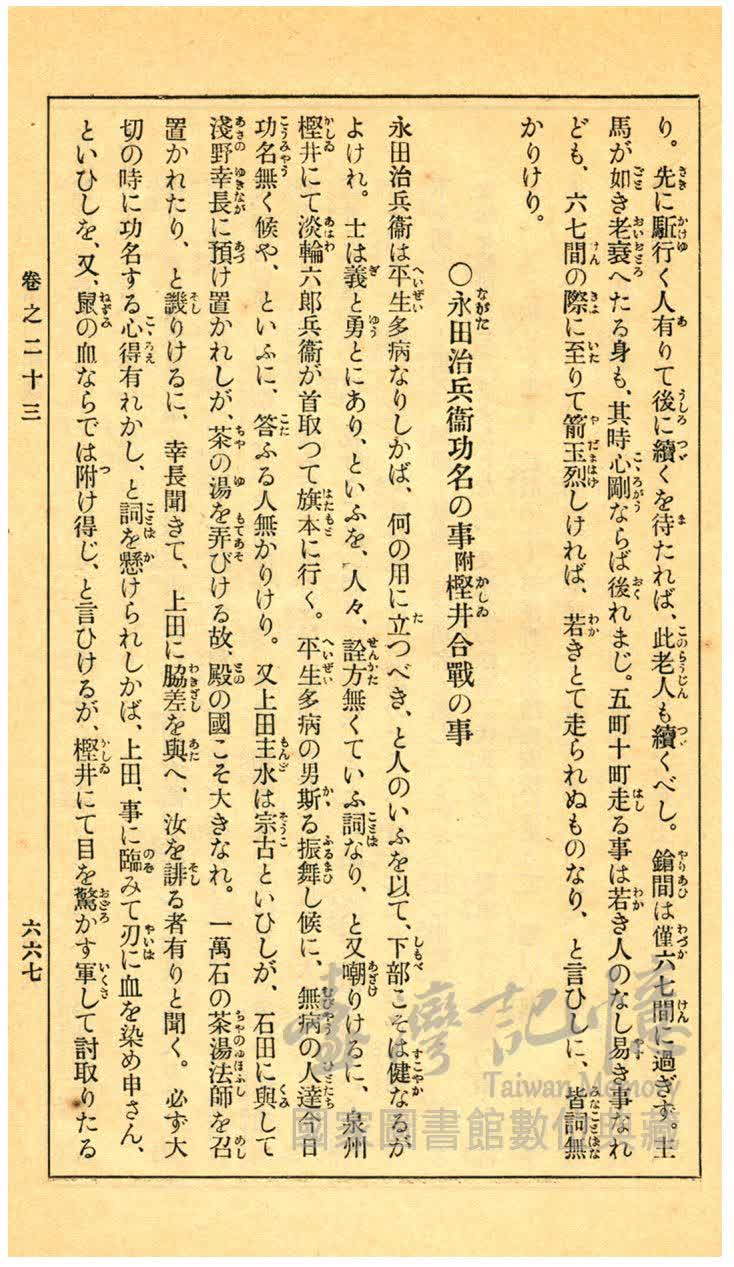 り。先に駈行く人有りて後に續くを待たれば、此老人も續くべし。鎗間は僅六七間に過ぎず。主
馬が如き老衰へたる身も、其時心剛ならば後れまじ。五町十町走る事は若き人のなし易き事なれ
ども、六七間の際に至りて箭玉烈しければ、若きとて走られぬものなり、と言ひしに、皆詞無
かりけり。
〇永田治兵衞功名の事附樫井合戰の事
永田治兵衞は平生多病なりしかば、何の用に立つべき、と人のいふを以て、下部こそは健なるが
よけれ。士は義と勇とにあり、といふを、人々、詮方無くていふ詞なり、と又嘲りけるに、泉州
樫井にて淡輪六郎兵衞が首取つて旗本に行く。平生多病の男斯る振舞し候に、無病の人達今日
功名無く候や、といふに、答ふる人無かりけり。又上田主水は宗古といひしが、石田に與して
淺野幸長に預け置かれしが、茶の湯を弄びける故、殿の國こそ大きなれ。一萬石の茶湯法師を召
置かれたり、と譏りけるに、幸長聞きて、上田に脇差を與へ、汝を誹る者有りと聞く。必ず大
切の時に功名する心得有れかし、と詞を懸けられしかば、上田、事に臨みて刃に血を染め申さん、
といひしを、又、鼠の血ならでは附け得じ、と言ひけるが、樫井にて目を驚かす軍して討取りたる
卷之二十三
六六七
臺灣記憶
Taiwan Memory
國家圖書館數位典藏